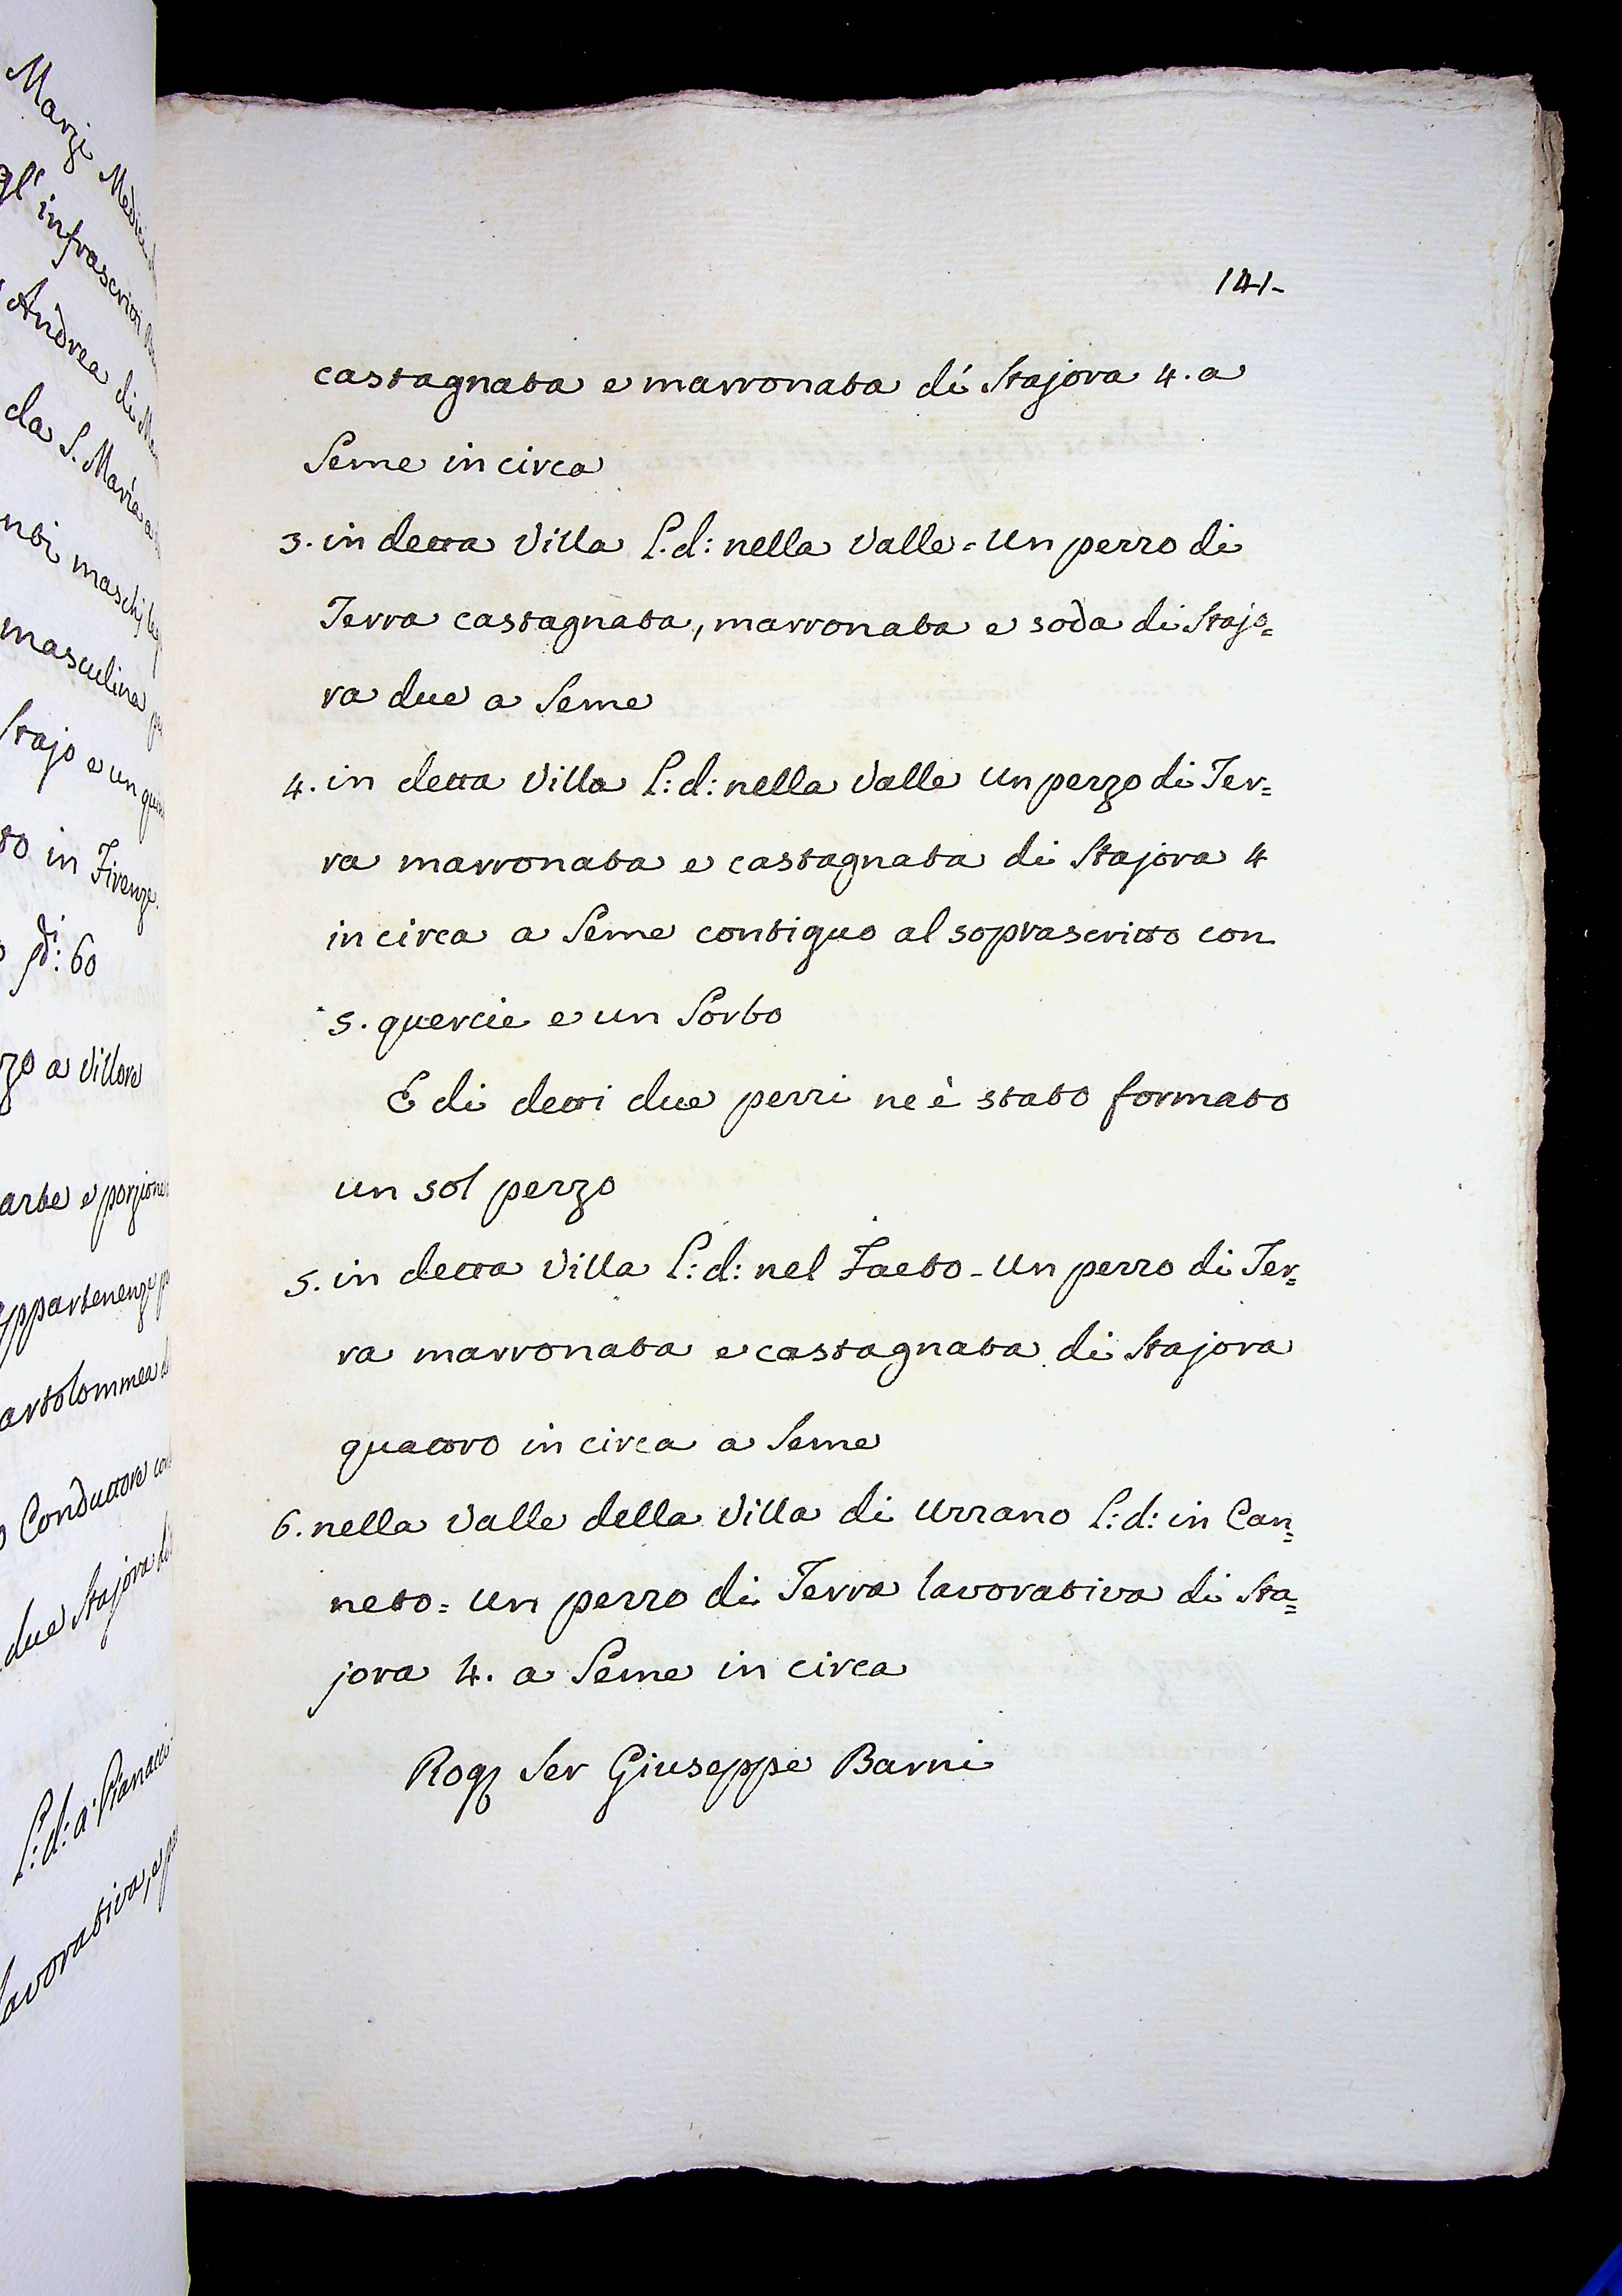 Marzi Medici
gl' infrascritti
Andrea di
da S. Maria a
maschj
masculina
Stajo e un
in Firenze
di: 60
a Villore
e porzione
Conduttore
due Stajora
L: d: a' Pianacci
lavorativa, e
141-
castagnata e marronata di Stajora 4. a
Seme in circa
3. in detta Villa L. d: nella Valle - Un pezzo di
Terra castagnata, marronata e soda di Stajo=
ra due a Seme
4. in detta Villa L: d: nella Valle Un pezzo di Ter=
ra marronata e castagnata di Stajora 4
in circa a Seme contiguo al soprascritto con
5. quercie e un Sorbo
E di detti due pezzi ne è stato formato
un sol pezzo
5. in detta Villa L: d: nel Faeto - Un pezzo di Ter=
ra marronata e castagnata di Stajora
quattro in circa a Seme
6. nella Valle della Villa di Uzzano L: d: in Can=
neto = Un pezzo di Terra lavorativa di Sta=
jora 4. a Seme in circa
Rog Ser Giuseppe Barni